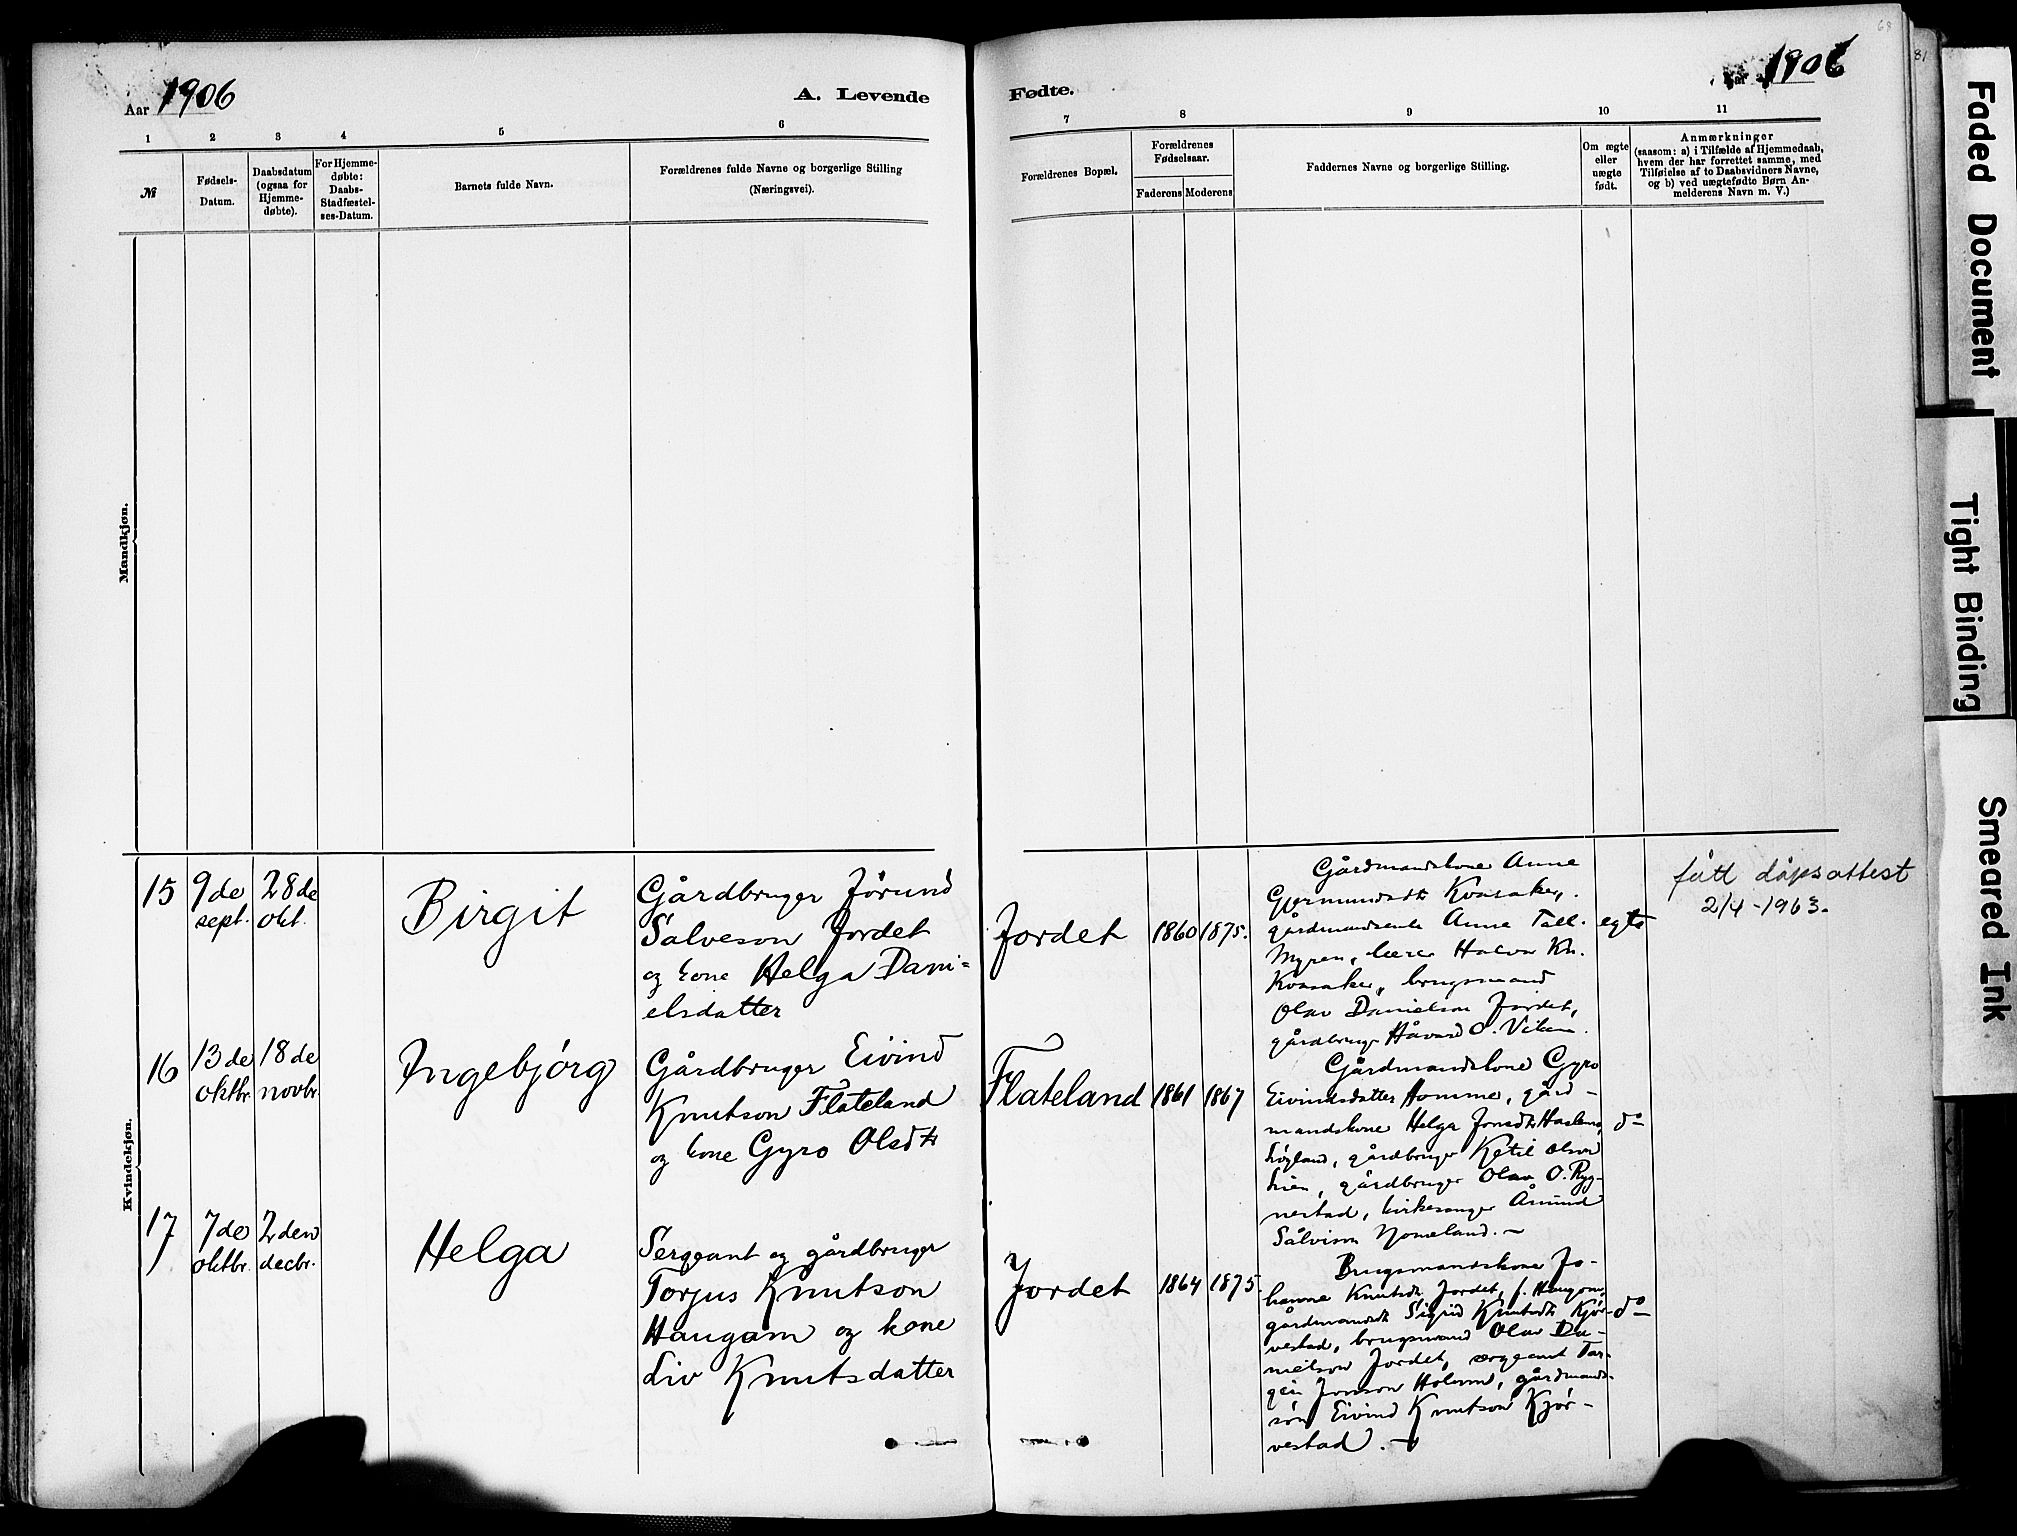 68
81
Aar 1906
A. Levende
Fødte.
Aar 1906
1 2 3 4 5 6
7 8 9 10 11
№
Fødsels-
Datum.
Daabsdatum
(ogsaa for
Hjemme-
døbte).
For Hjemme-
døbte:
Daabs-
Stadfæstel-
ses-Datum.
Barnets fulde Navn.
Forældrenes fulde Navne og borgerlige Stilling
(Næringsvei).
Forældrenes Bopæl.
Forældrenes
Fødselsaar.
Faderens Moderens
Faddernes Navne og borgerlige Stilling.
Om ægte
eller
uægte
født.
Anmærkninger
(saasom: a) i Tilfælde af Hjemmedaab,
hvem der har forrettet samme, med
Tilføielse af to Daabsvidners Navne,
og b) ved uægtefødte Børn An-
melderens Navn m. V.)
Mandkjøn.
Kvindekjøn.
15
9de
sept.
28de
okt.
Birgit
Gårdbruger Jörund
Salveson Jordet
og kone Helga Dani-
elsdatter
Jordet
1860
1875.
Gårdmandskone Anne
Gjermundsdtr Kvasaker,
Anne Tall.
Myren, lærer Halvor Kn.
Kvasaker, brugsmand
Olav Danielson Jordet,
gårdbruger Håvard O. Viken.
egte
fått dåpsattest
2/4-1963.
16
13de
oktbr.
18de
novbr.
Ingebjörg
Gårdbruger Eivind
Knutson Flateland
og kone Gyro Olsdtr
Flateland
1861
1867
Gårdmandskone Gyro
Eivindsdatter Homme, gård-
mandskone Helga Jonsdtr
gårdbruger Ketil Olson
gårdbruger Olav O. Ryg-
nestad, kirkesanger Åmund
Sålvison Nomeland.
do
17
7de
oktbr.
2den
decbr.
Helga
Sergeant og gårdbruger
Torjus Knutson
Haugam og kone
Liv Knutsdatter
Jordet
1864
1875.
Brugsmandskone Jo-
hanne Knutsdtr Jordet, f.
Sigrid Knutsdtr Kjör-
vestad, brugsmand Olav Da-
nielson Jordet, sergeant Tar-
gei Jonson gårdmands-
søn Eivind Knutson Kjör-
vestad.
do
Faded Document
Tight Binding
Smeared Ink